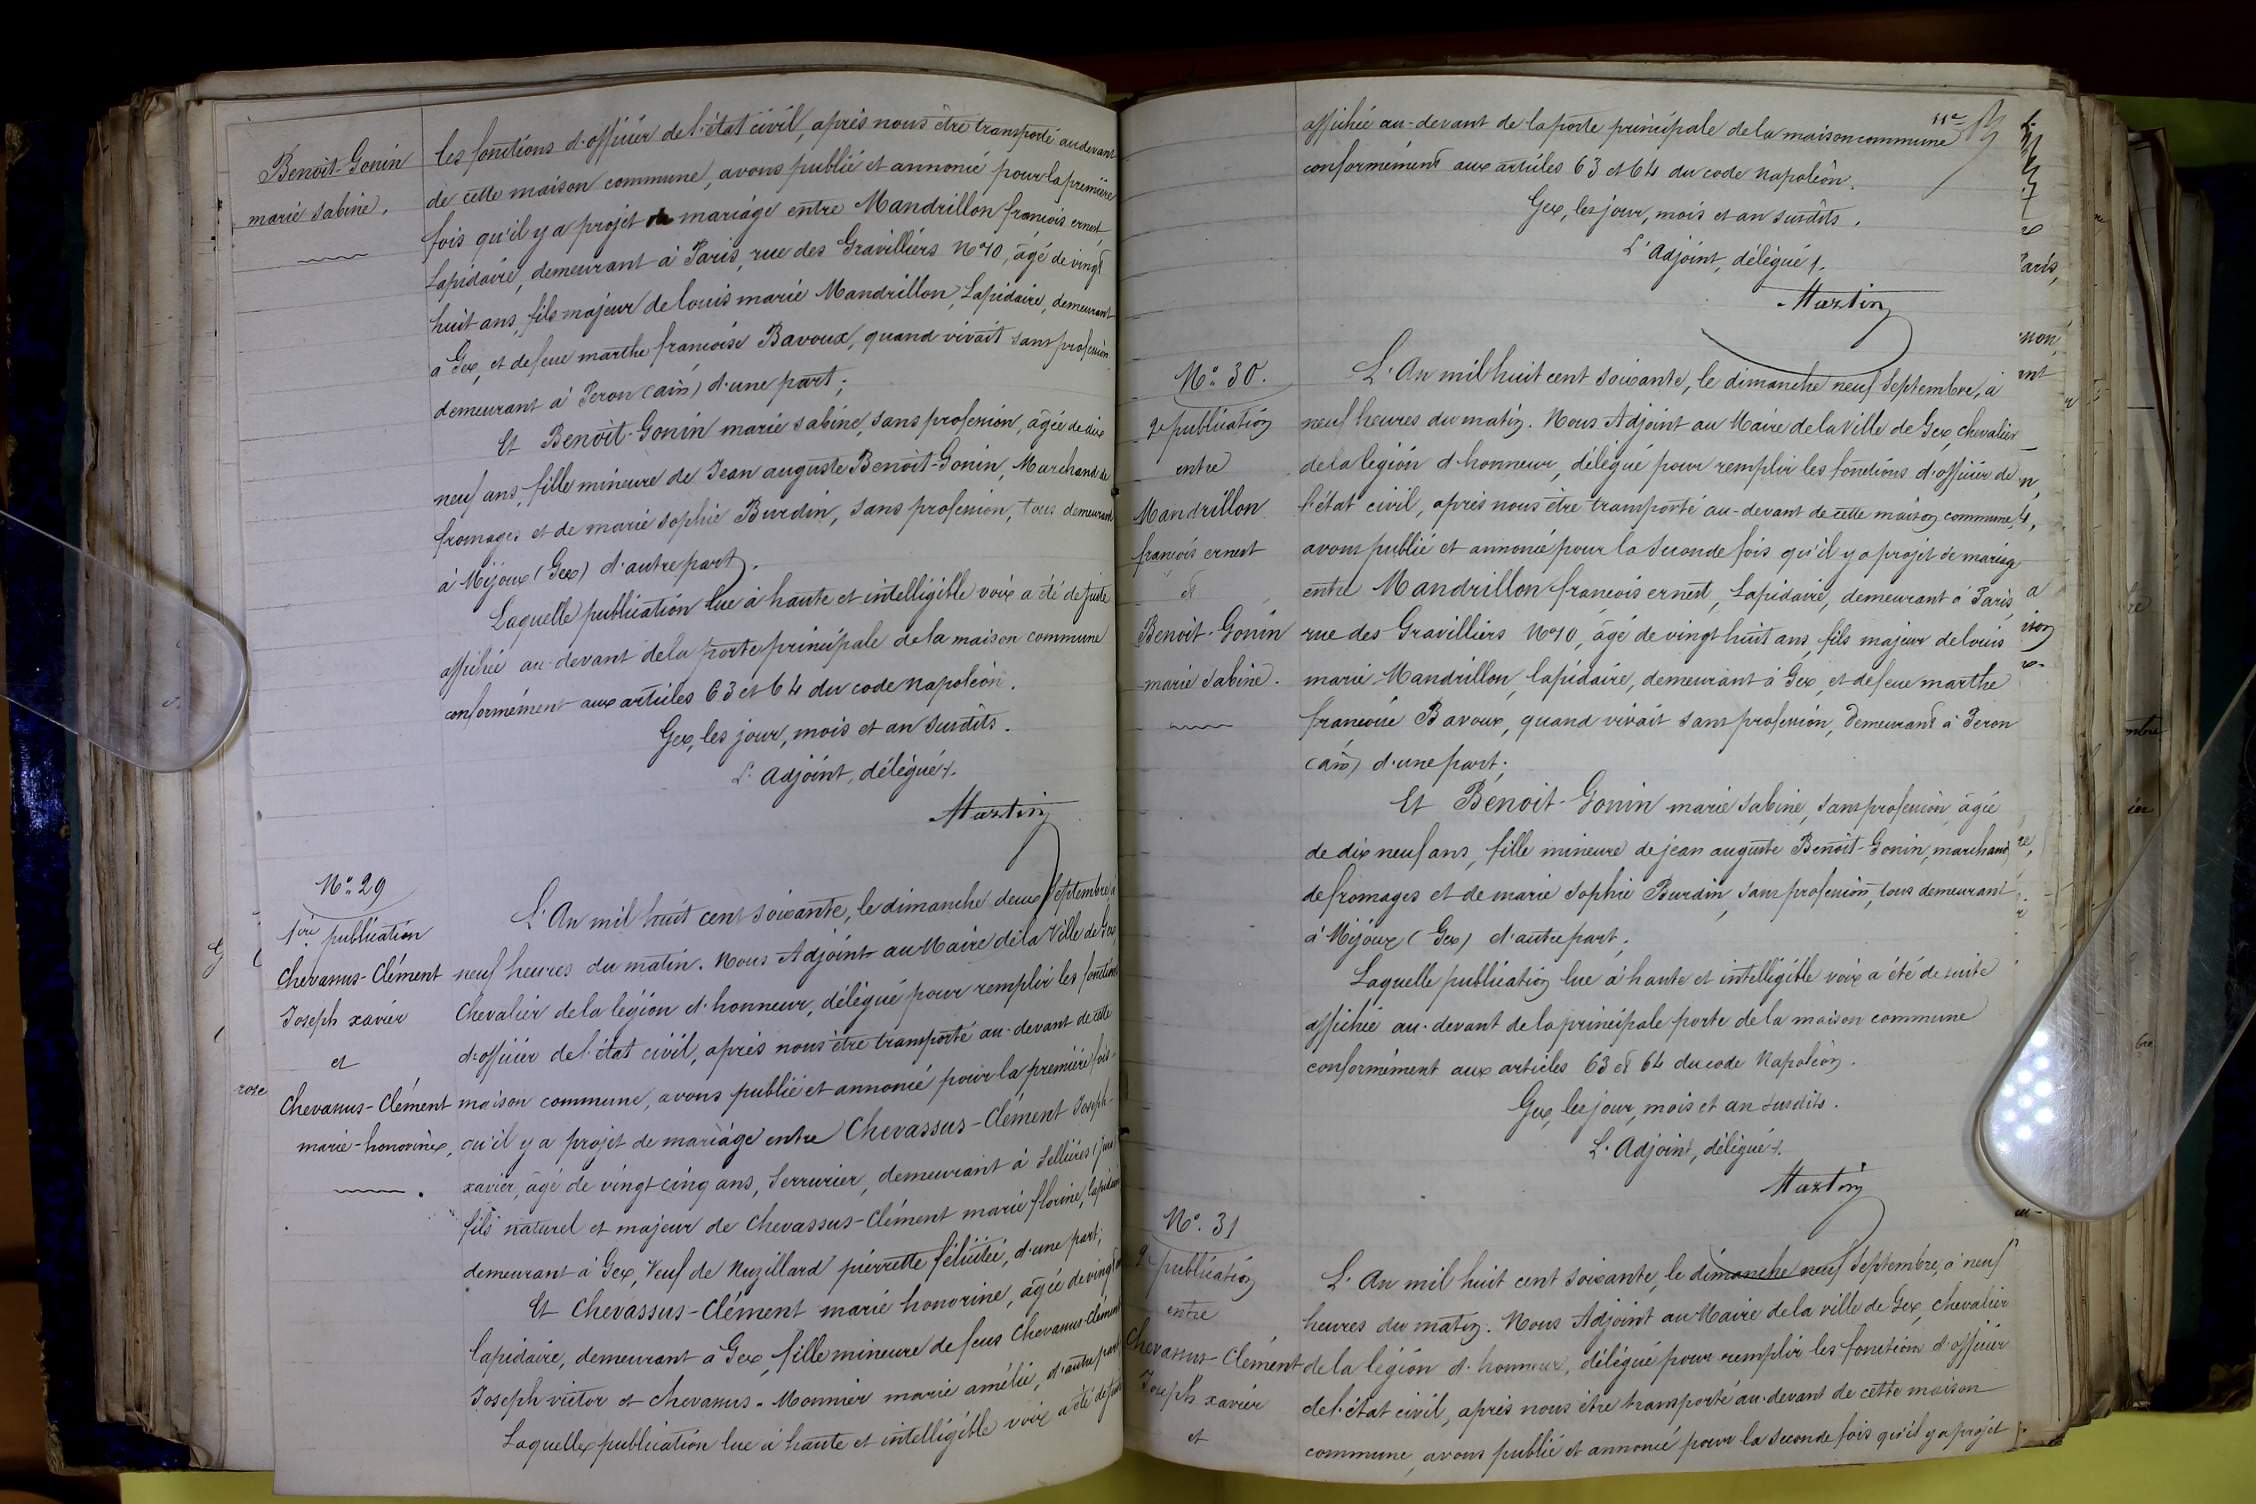 Benoit-Gonin
marie sabine.
les fonctions d'officier de l'état civil, après nous être transporté au devant
de cette maison commune, avons publié et annoncé pour la première
fois qu'il y a projet de mariage entre Mandrillon françois ernest,
Lapidaire, demeurant à Paris, rue des Gravilliers N° 10, âgé de vingt
huit ans, fils majeur de louis marie Mandrillon, Lapidaire, demeurant
à Gex, et de feue marthe françoise Bavoux, quand vivait sans profession
demeurant à Peron (ain) d'une part;
Et Benoit-Gonin marie sabine, sans profession, âgée de dix
neuf ans, fille mineure de Jean auguste Benoit-Gonin, Marchand de
fromages et de marie sophie Burdin, sans profession, tous demeurant
à Mijoux (Gex) d'autre part.
Laquelle publication lue à haute et intelligible voix a été de suite
affichée au-devant de la porte principale de la maison commune
conformément aux articles 63 et 64 du code Napoléon.
Gex, les jour, mois et an susdits.
L'adjoint, délégué.
Martin
N° 29
1ère publication
Chevassus-Clément
Joseph xavier
et
Chevassus-Clément
marie-honorine,
L'An mil huit cent soixante, le dimanche deux septembre, à
neuf heures du matin. Nous Adjoint au Maire de la Ville de Gex,
Chevalier de la légion d'honneur, délégué pour remplir les fonctions
d'officier de l'état civil, après nous être transporté au-devant de cette
maison commune, avons publié et annoncé pour la première fois
qu'il y a projet de mariage entre Chevassus-Clément Joseph-
xavier, âgé de vingt cinq ans, Serrurier, demeurant à Sellières (jura)
fils naturel et majeur de Chevassus-Clément marie florine, lapidaire
demeurant à Gex, Veuf de Nuzillard pierrette félicitée, d'une part;
Et Chevassus-Clément marie honorine, âgée de vingt
lapidaire, demeurant à Gex, fille mineure de feus Chevassus-Clément
Joseph victor et chevassus-Monnier marie amélie, d'autre part
Laquelle publication lue à haute et intelligible voix a été de suite
11e
affichée au-devant de la porte principale de la maison commune
conformément aux articles 63 et 64 du code napoléon.
Gex, les jour, mois et an susdits.
L'adjoint, délégué.
Martin
N° 30.
2e publication
entre
Mandrillon
françois ernest
et
Benoit-Gonin
marie sabine.
L'An mil huit cent soixante, le dimanche neuf septembre, à
neuf heures du matin. Nous Adjoint au Maire de la Ville de Gex, Chevalier
de la légion d'honneur, délégué pour remplir les fonctions d'officier de
l'état civil, après nous être transporté au-devant de cette maison commune,
avons publié et annoncé pour la seconde fois qu'il y a projet de mariage
entre Mandrillon françois ernest, Lapidaire, demeurant à Paris,
rue des Gravilliers N° 10, âgé de vingt huit ans, fils majeur de louis
marie Mandrillon, lapidaire, demeurant à Gex, et de feue marthe
françoise Bavoux, quand vivait sans profession, demeurant à Peron
(ain) d'une part;
Et Benoit-Gonin marie sabine, sans profession, âgée
de dix neuf ans, fille mineure de jean auguste Benoit-Gonin, marchand
de fromages et de marie sophie Burdin, sans profession, tous demeurant
à Mijoux (Gex) d'autre part.
Laquelle publication lue à haute et intelligible voix a été de suite
affichée au-devant de la principale porte de la maison commune
conformément aux articles 63 et 64 du code Napoléon.
Gex, les jour, mois et an susdits.
L'Adjoint, délégué.
Martin
N° 31
2e publication
entre
Chevassus-Clément
Joseph xavier
et
L'An mil huit cent soixante, le dimanche neuf septembre, à neuf
heures du matin. Nous Adjoint au Maire de la ville de Gex, Chevalier
de la légion d'honneur, délégué pour remplir les fonctions d'officier
de l'état civil, après nous être transporté au-devant de cette maison
commune, avons publié et annoncé pour la seconde fois qu'il y a projet